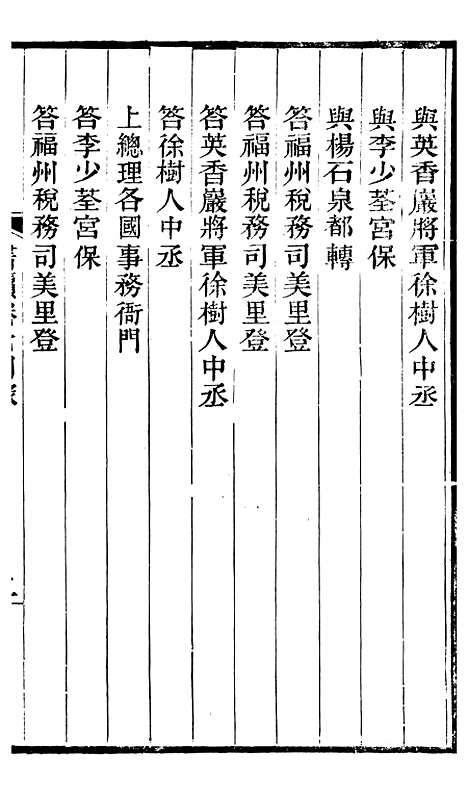 與英香巖將軍徐樹人中丞
與李少荃宮保
與楊石泉都轉
答福州稅務司美里登
答福州稅務司美里登
答英香巖將軍徐樹人中丞
答徐樹人中丞
上總理各國事務衙門
答李少荃宮保
答福州稅務司美里登